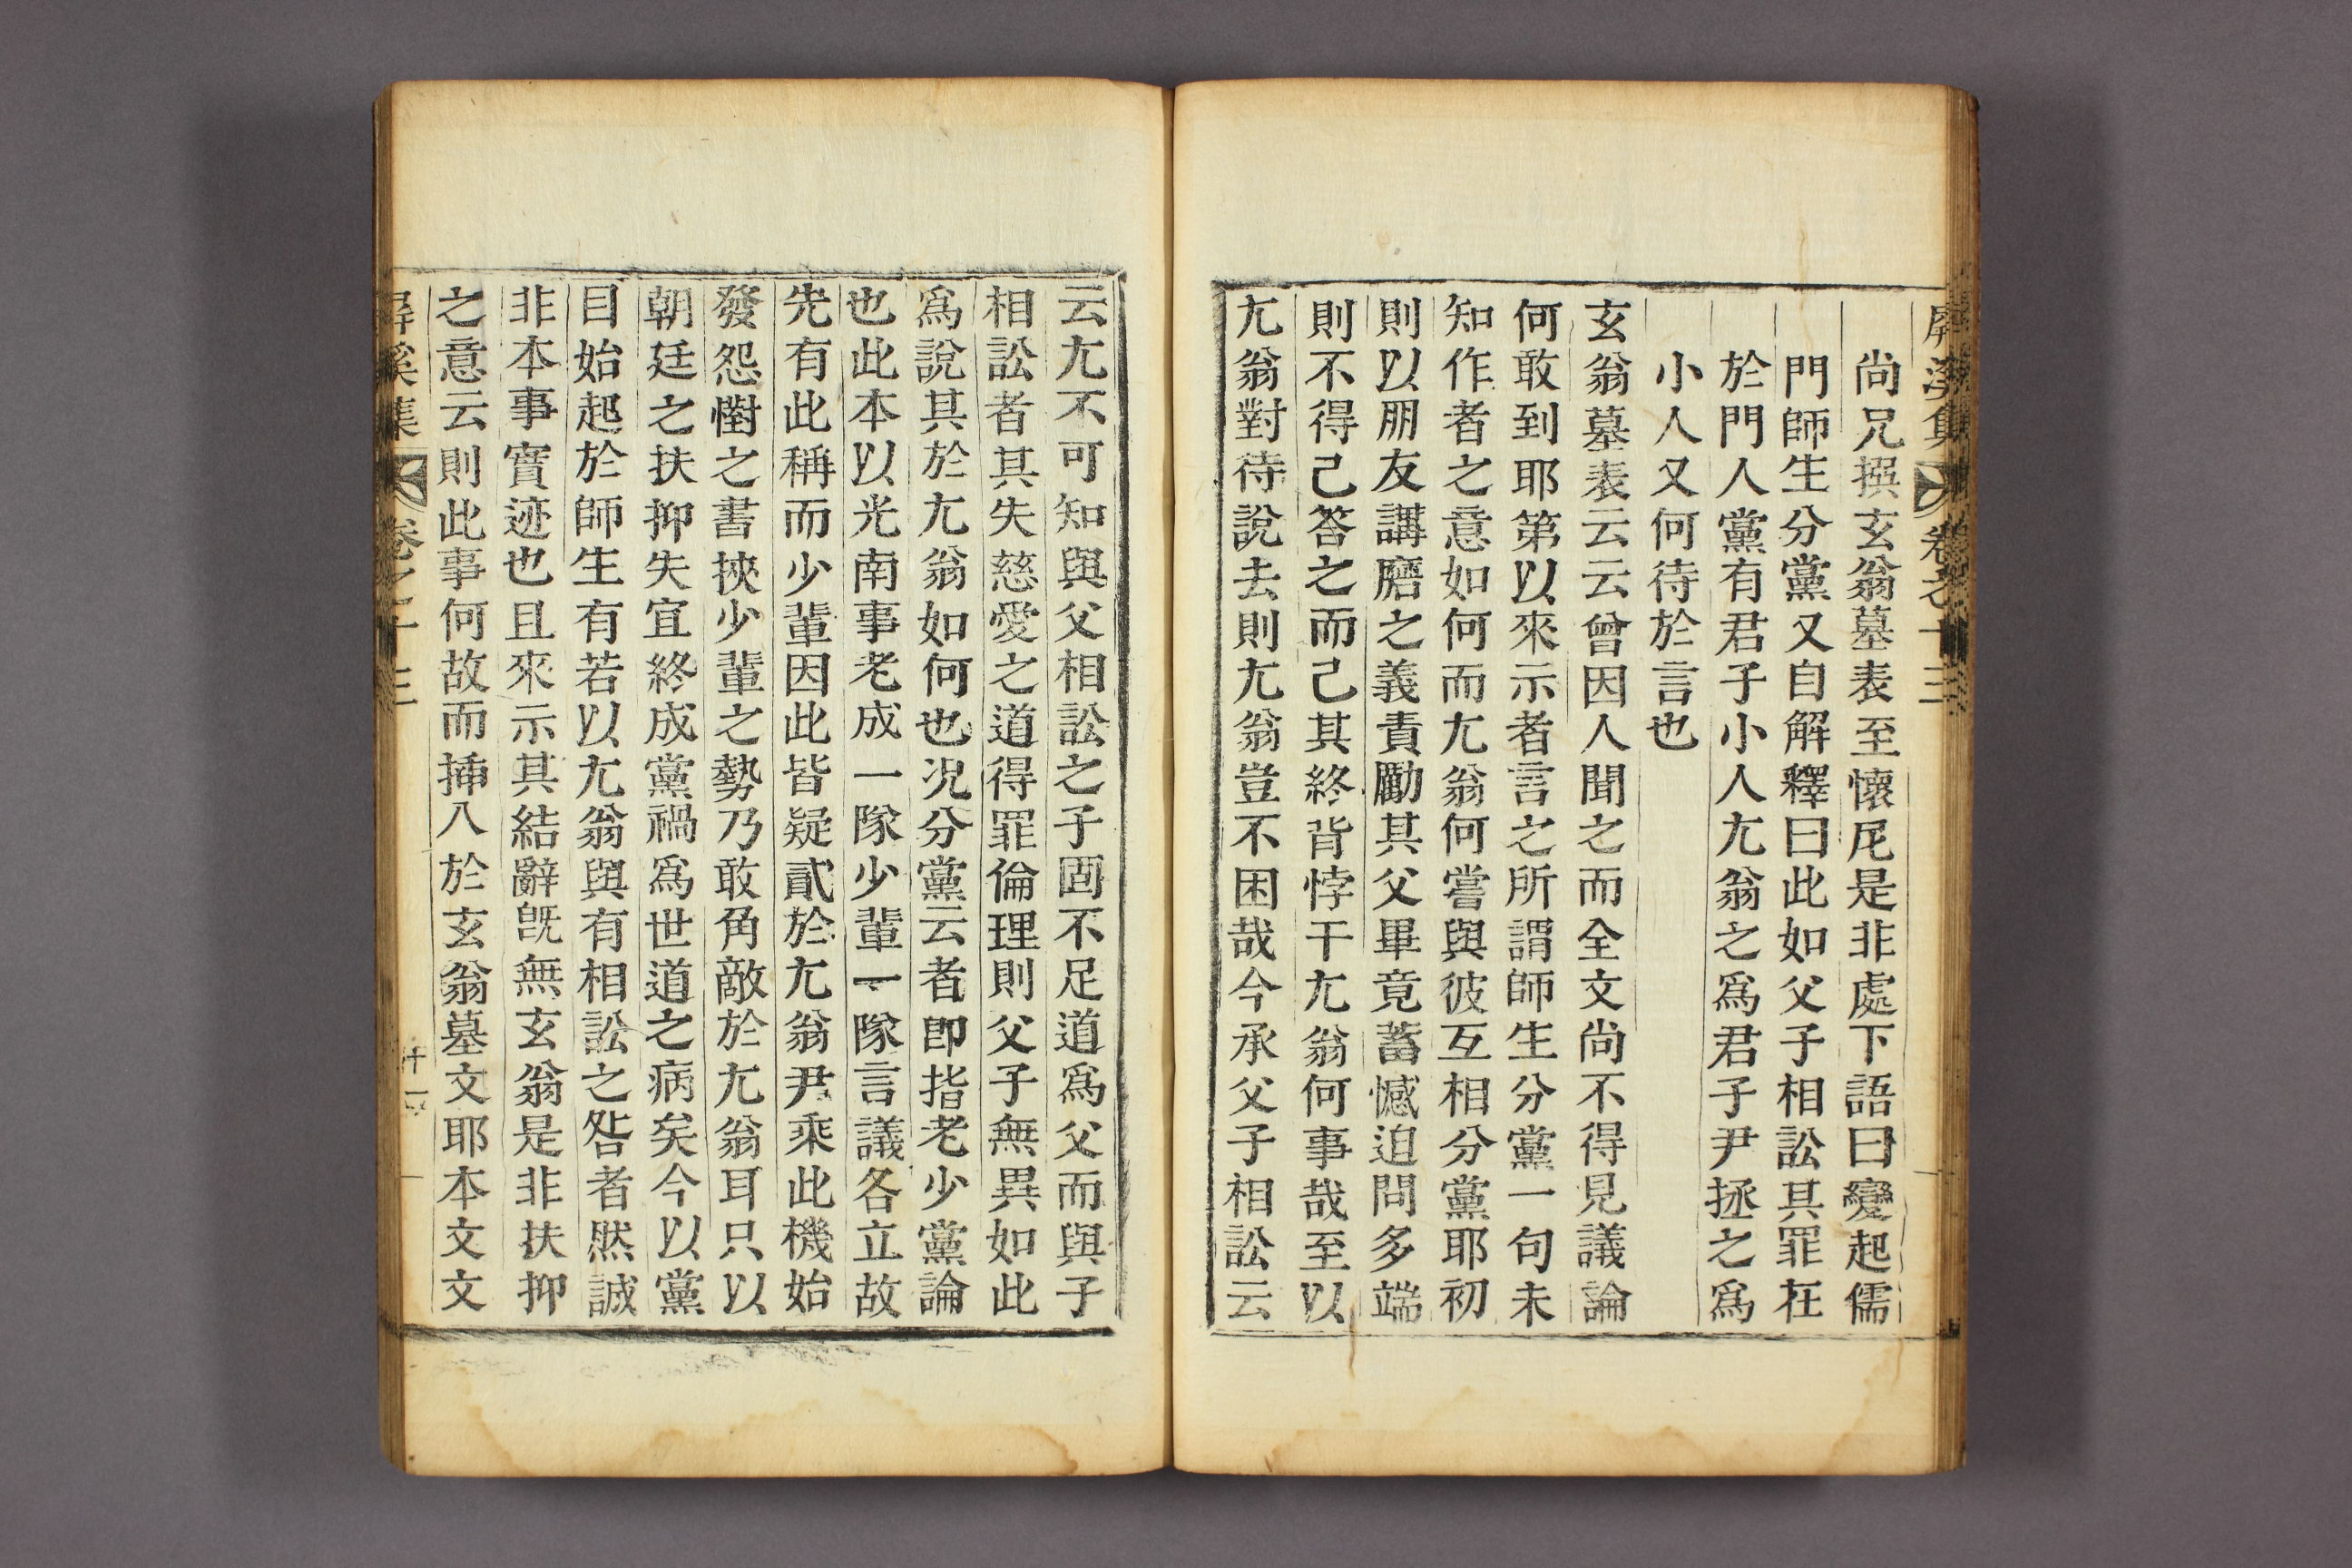 屏溪集 卷之十三
尚兄撰玄翁墓表至懷尼是非處下語曰變起儒
門師生分黨又自解釋曰此如父子相訟其罪在
於門人黨有君子小人尤翁之爲君子尹拯之爲
小人又何待於言也
玄翁墓表云云曾因人聞之而全文尚不得見議論
何敢到耶第以來示者言之所謂師生分黨一句未
知作者之意如何而尤翁何嘗與彼互相分黨耶初
則以朋友講磨之義責勵其父畢竟蓄憾迫問多端
則不得已答之而已其終背悖干尤翁何事哉至以
尤翁對待說去則尤翁豈不困哉今承父子相訟云
云尤不可知與父相訟之子固不足道爲父而與子
相訟者其失慈愛之道得罪倫理則父子無異如此
爲說其於尤翁如何也况分黨云者卽指老少黨論
也此本以光南事老成一隊少輩一隊言議各立故
先有此稱而少輩因此皆疑貳於尤翁尹乘此機始
發怨懟之書挾少輩之勢乃敢角敵於尤翁耳只以
朝廷之扶抑失宜終成黨禍爲世道之病矣今以黨
目始起於師生有若以尤翁與有相訟之咎者然誠
非本事實迹也且來示其結辭旣無玄翁是非扶抑
之意云則此事何故而揷入於玄翁墓文耶本文文
屏溪集 卷之十三